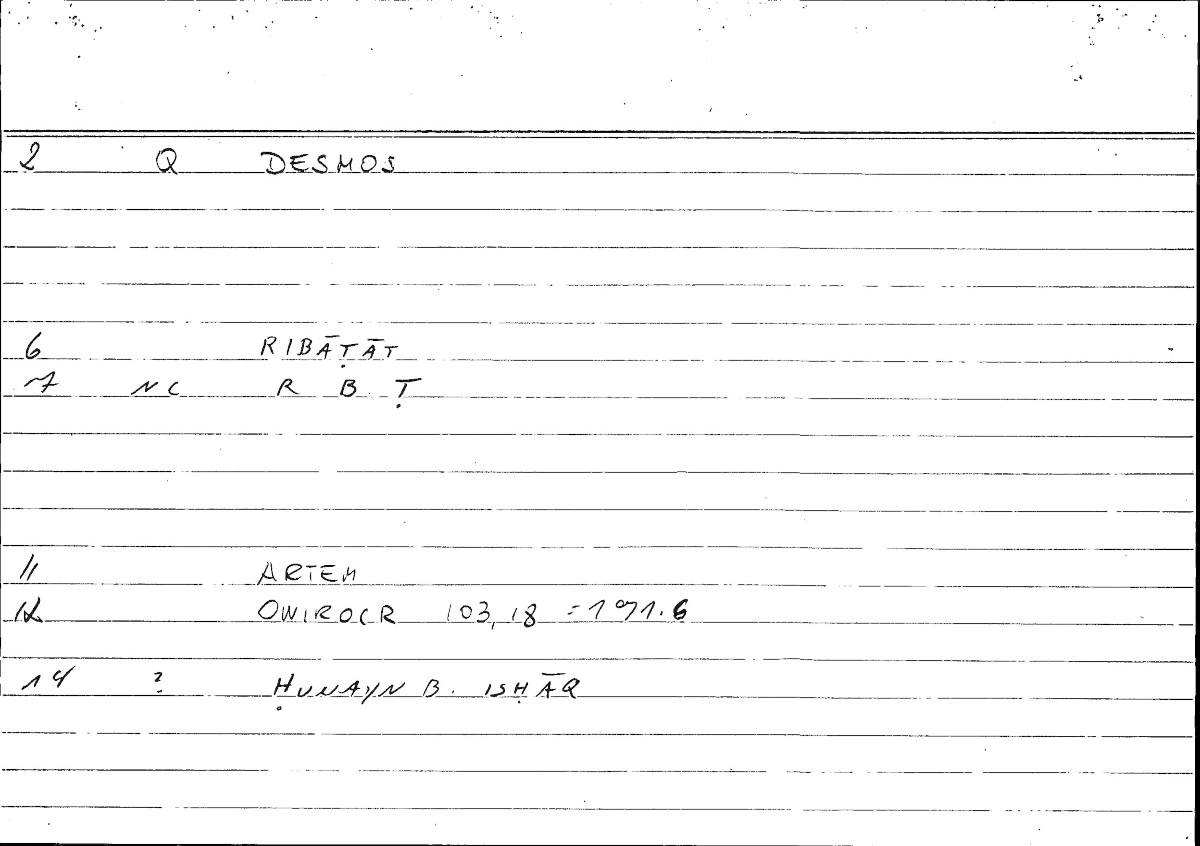 2 Q DESMOS
6 RIBĀṬĀT
7 NC R B Ṭ
11 ARTEM
12 ONIROCR 103,18 = 191.6
14 ? ḤUNAYN B. ISḤĀQ